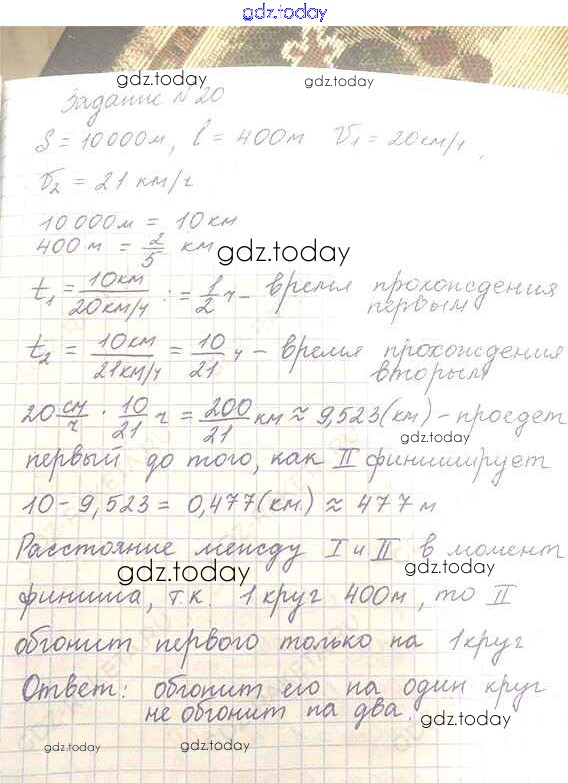 gdz.today
gdz.today gdz.today
Задание N20
S = 10000м, l = 400м V₁ = 20км/ч,
V₂ = 21 км/ч
10 000м = 10 км
400 м = 2/5 км
gdz.today
t₁ = 10км/20км/ч = 1/2 ч - время прохождения первым
t₂ = 10км/21км/ч = 10/21 ч - время прохождения вторым
20 км/ч · 10/21 ч = 200/21 км ≈ 9,523(км) - проедет
gdz.today
первый до того, как II финиширует
10 - 9,523 = 0,477(км) ≈ 477 м
Расстояние между I и II в момент
gdz.today gdz.today
финиша, т.к. 1 круг 400м, то II
обгонит первого только на 1 круг
Ответ: обгонит его на один круг
не обгонит на два.
gdz.today
gdz.today gdz.today